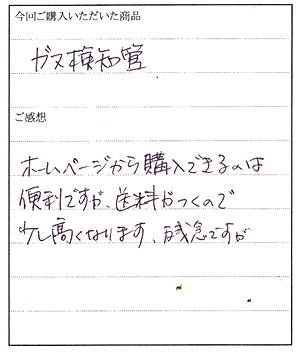 今回ご購入いただいた商品
ガス検知管
ご感想
ホームページから購入できるのは
便利ですが、送料がつくので
少し高くなります、残念ですが